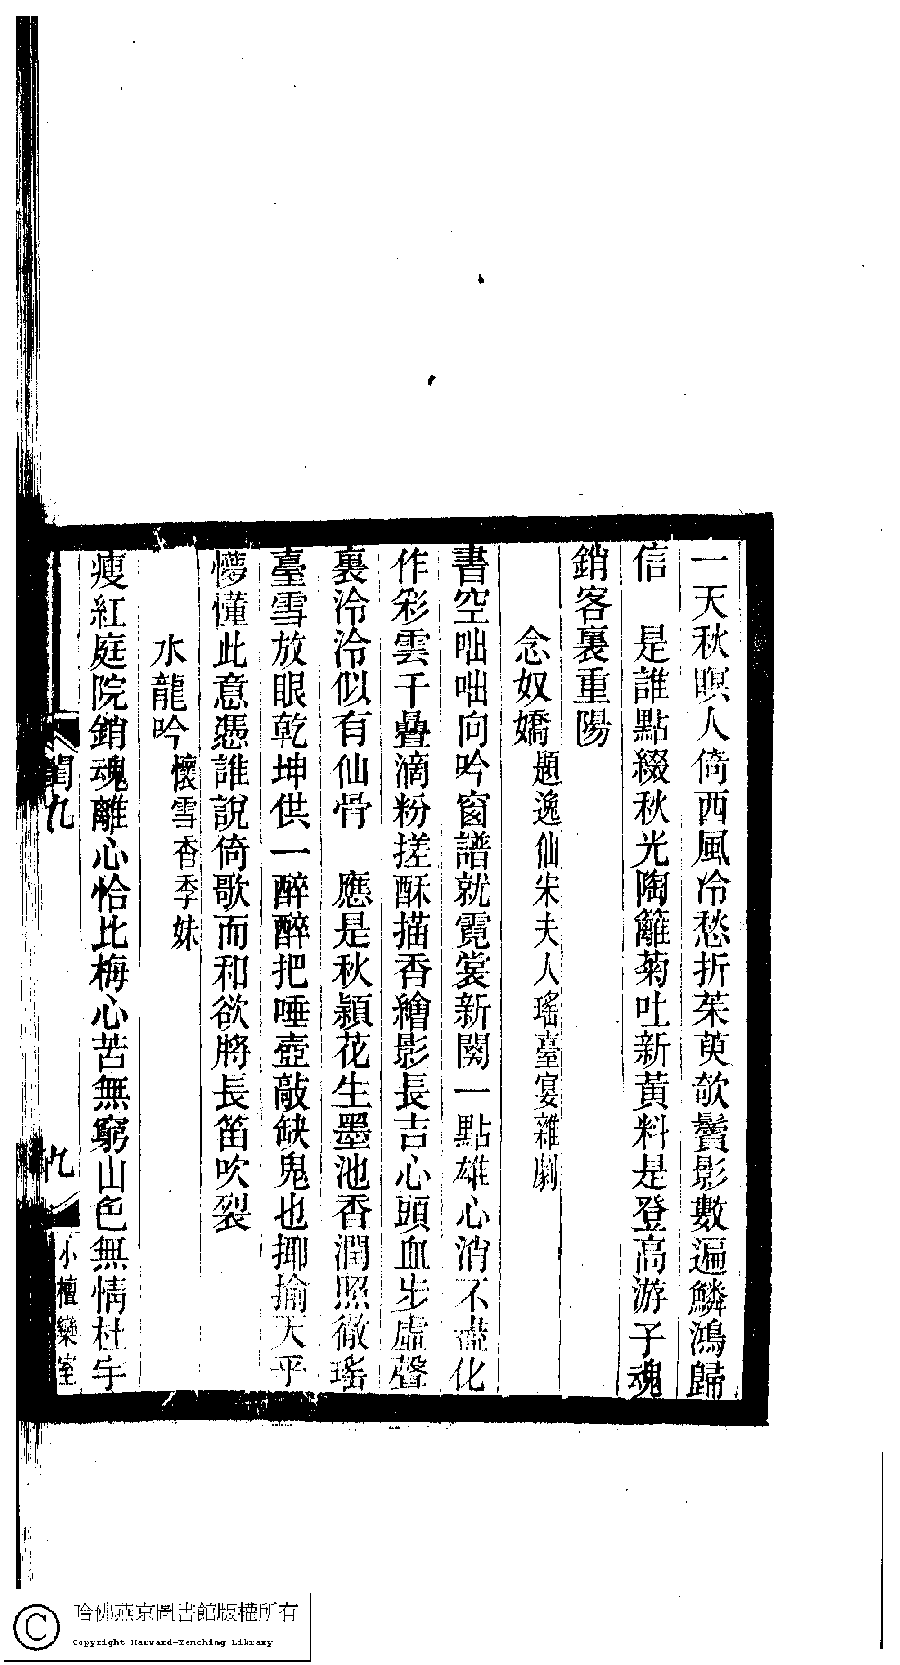 一天秋暝人倚西風冷愁折茱萸欹鬢影數遍鱗鴻歸
信　是誰點綴秋光陶籬菊吐新黃料是登高游子魂
銷客裏重陽
念奴嬌題逸仙宋夫人瑤臺宴雜劇
書空咄咄向吟窗譜就霓裳新闋一點雄心消不盡化
作彩雲千疊滴粉搓酥描香繪影長吉心頭血步虛聲
裏泠泠似有仙骨　應是秋穎花生墨池香潤照徹瑤
臺雪放眼乾坤供一醉醉把唾壺敲缺鬼也揶揄天乎
懜懂此意憑誰說倚歌而和欲將長笛吹裂
水龍吟懷雪香季妹
瘦紅庭院銷魂離心恰比梅心苦無窮山色無情杜宇
閨九
九
小檀欒室
哈佛燕京圖書館版權所有
Copyright Harvard-Yenching Library